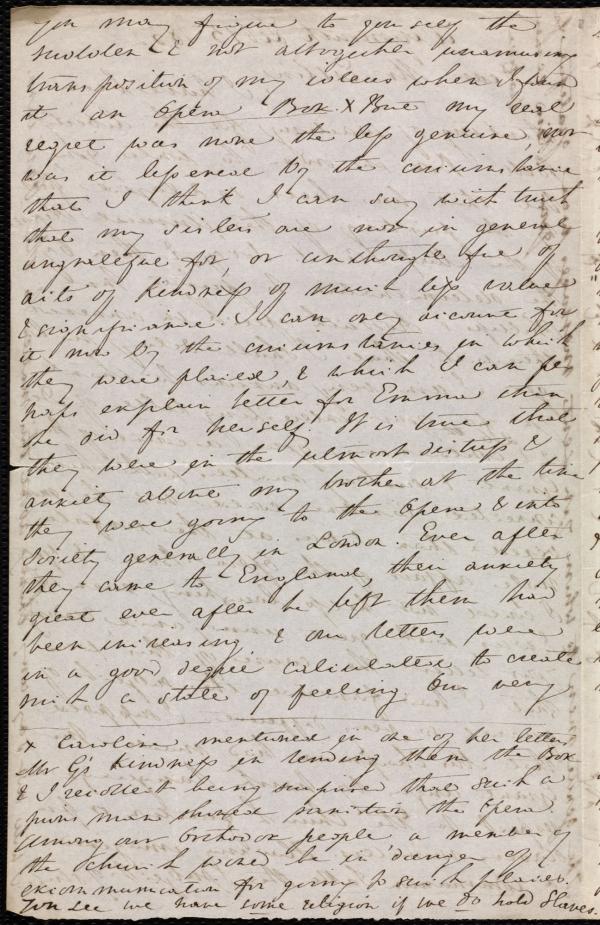 you may figure to yourself the
sudden & not altogether unamusing
transposition of my ideas when I found
it an Opera Box. X But my real
regret was none the less genuine, nor
was it lessened by the circumstance
that I think I can say with truth
that my sisters are not in general
ungrateful for, or unthoughtful of
acts of kindness of much less value
& significance. I can only account for
it now by the circumstances in which
they were placed, & which I can per
haps explain better for Emma than
she did for herself. It is true that
they were in the utmost distress &
anxiety about my brother at the time
they were going to the Opera & into
Society generally in London. Ever after
they came to England, their anxiety
great ever after he left them had
been increasing & our letters were
in a good degree calculated to create
such a state of feeling. Our very
X Caroline mentioned in one of her letters
Mr G's kindness in lending them the Box
& I recollect being surprised that such a
pious man should sanction the Opera.
Among our Orthodox people a member of
the Church would be in danger of
excommunication for going to such places.
You see we have some religion if we do hold Slaves.